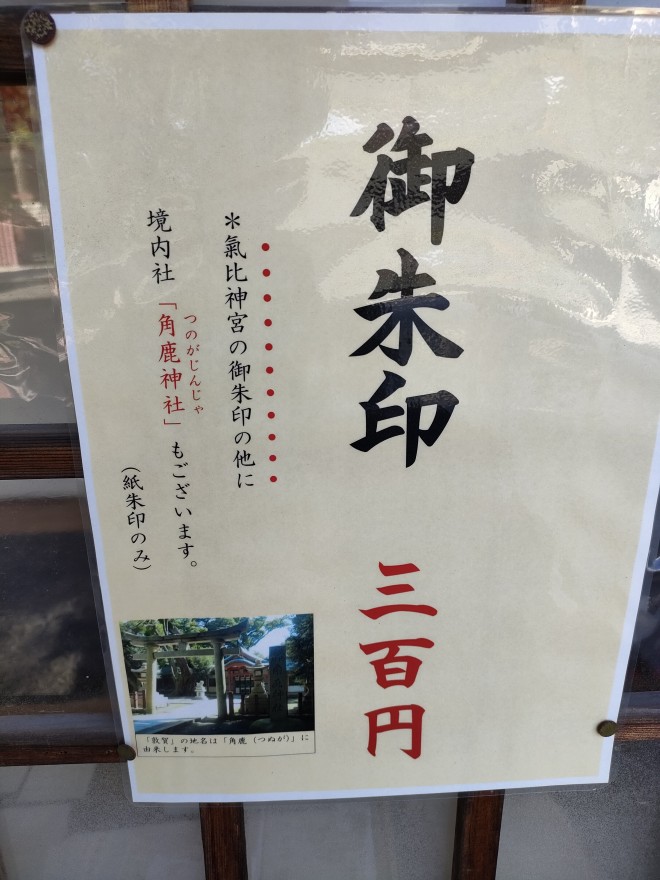 御朱印 三百円
＊氣比神宮の御朱印の他に
つのがじんじゃ
境内社「角鹿神社」もございます。
（紙朱印のみ）
「敦賀」の地名は「角鹿（つぬが）」に
由来します。